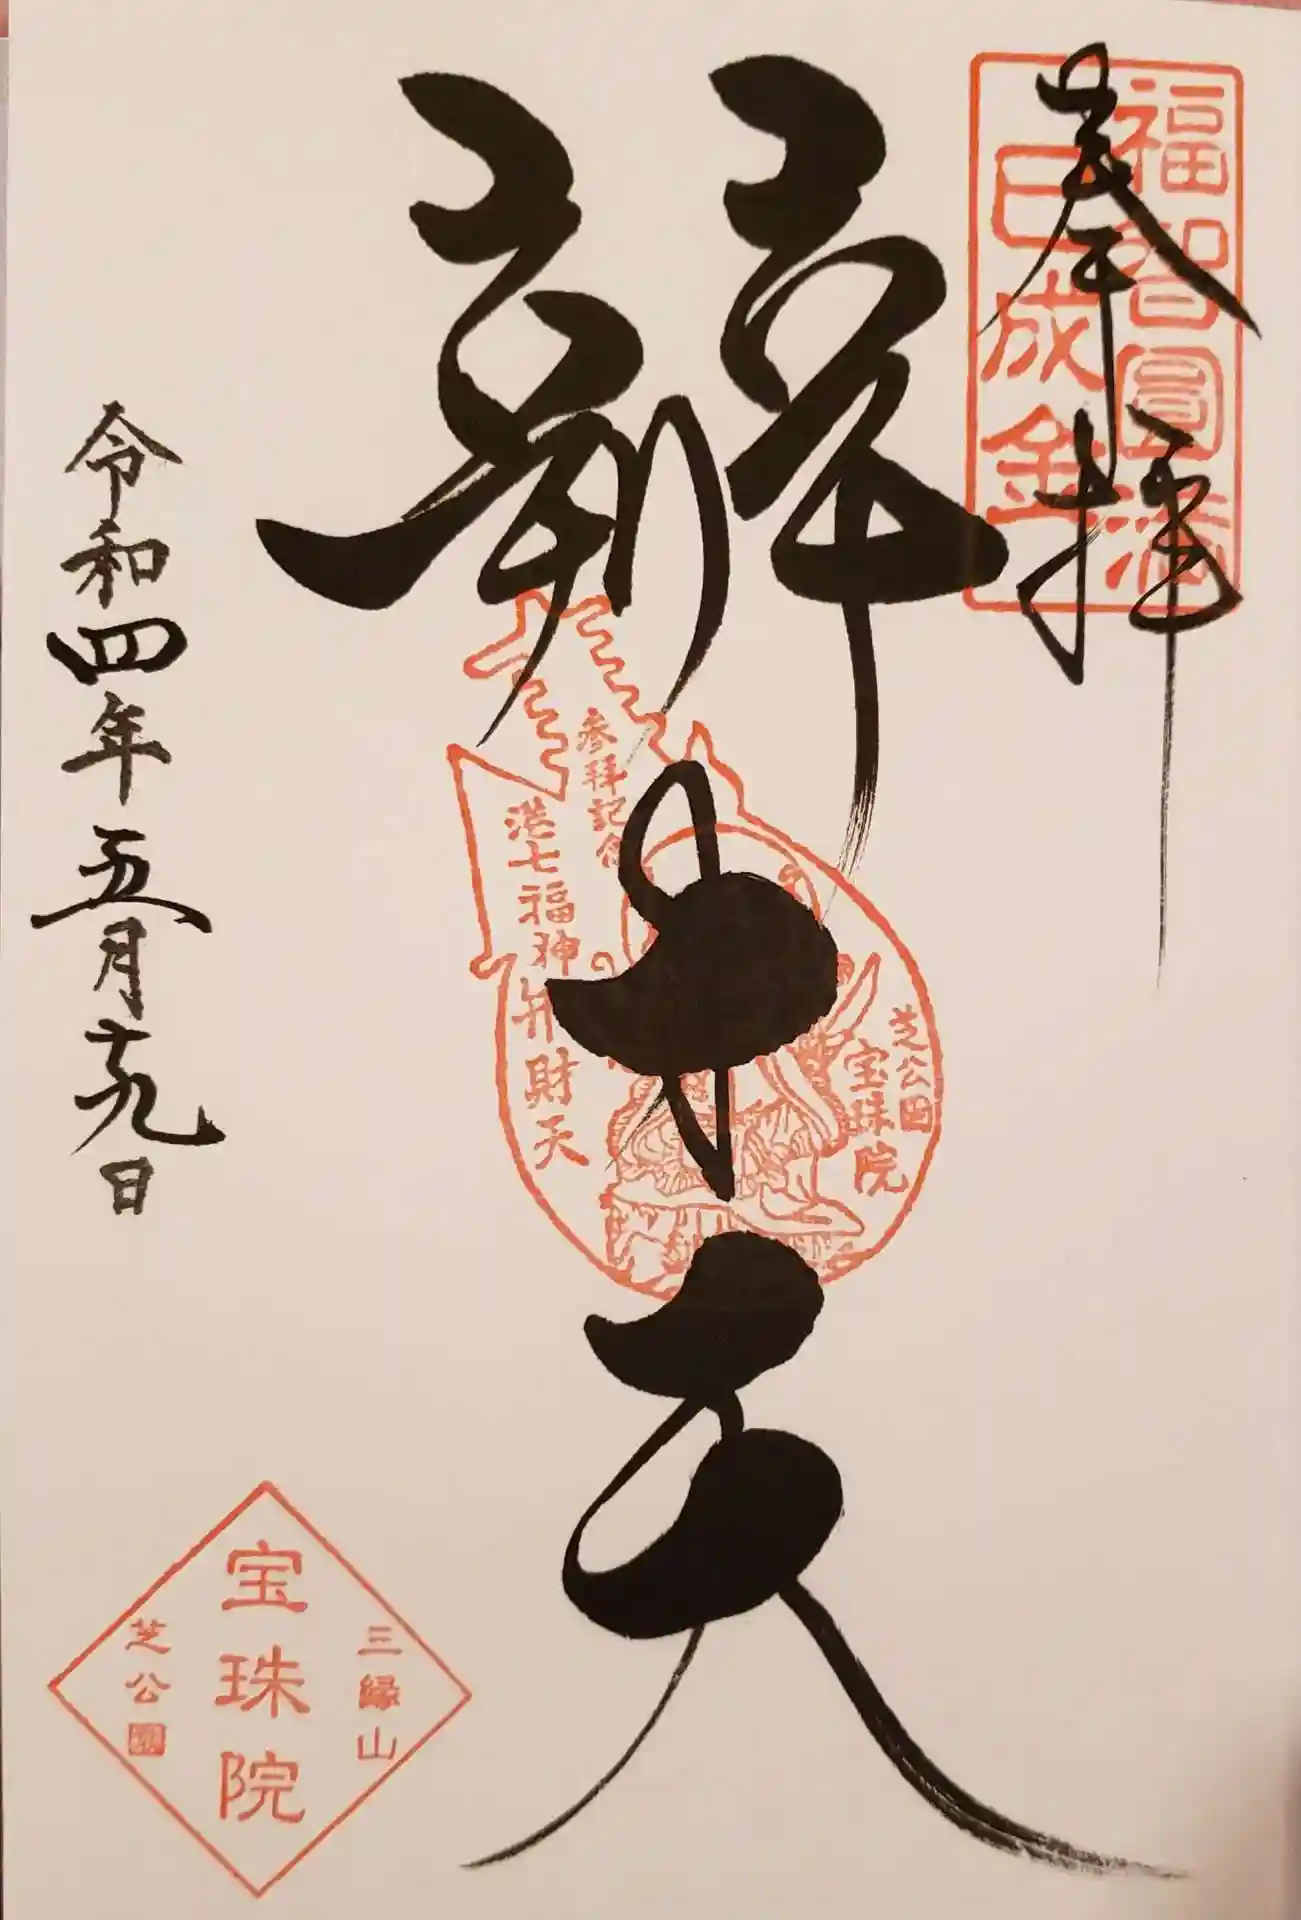 奉拝
福智圓満
巳成金
辨才天
参拝記念
港七福神
弁財天
芝公園
宝珠院
令和四年五月十九日
三縁山
宝珠院
芝公園